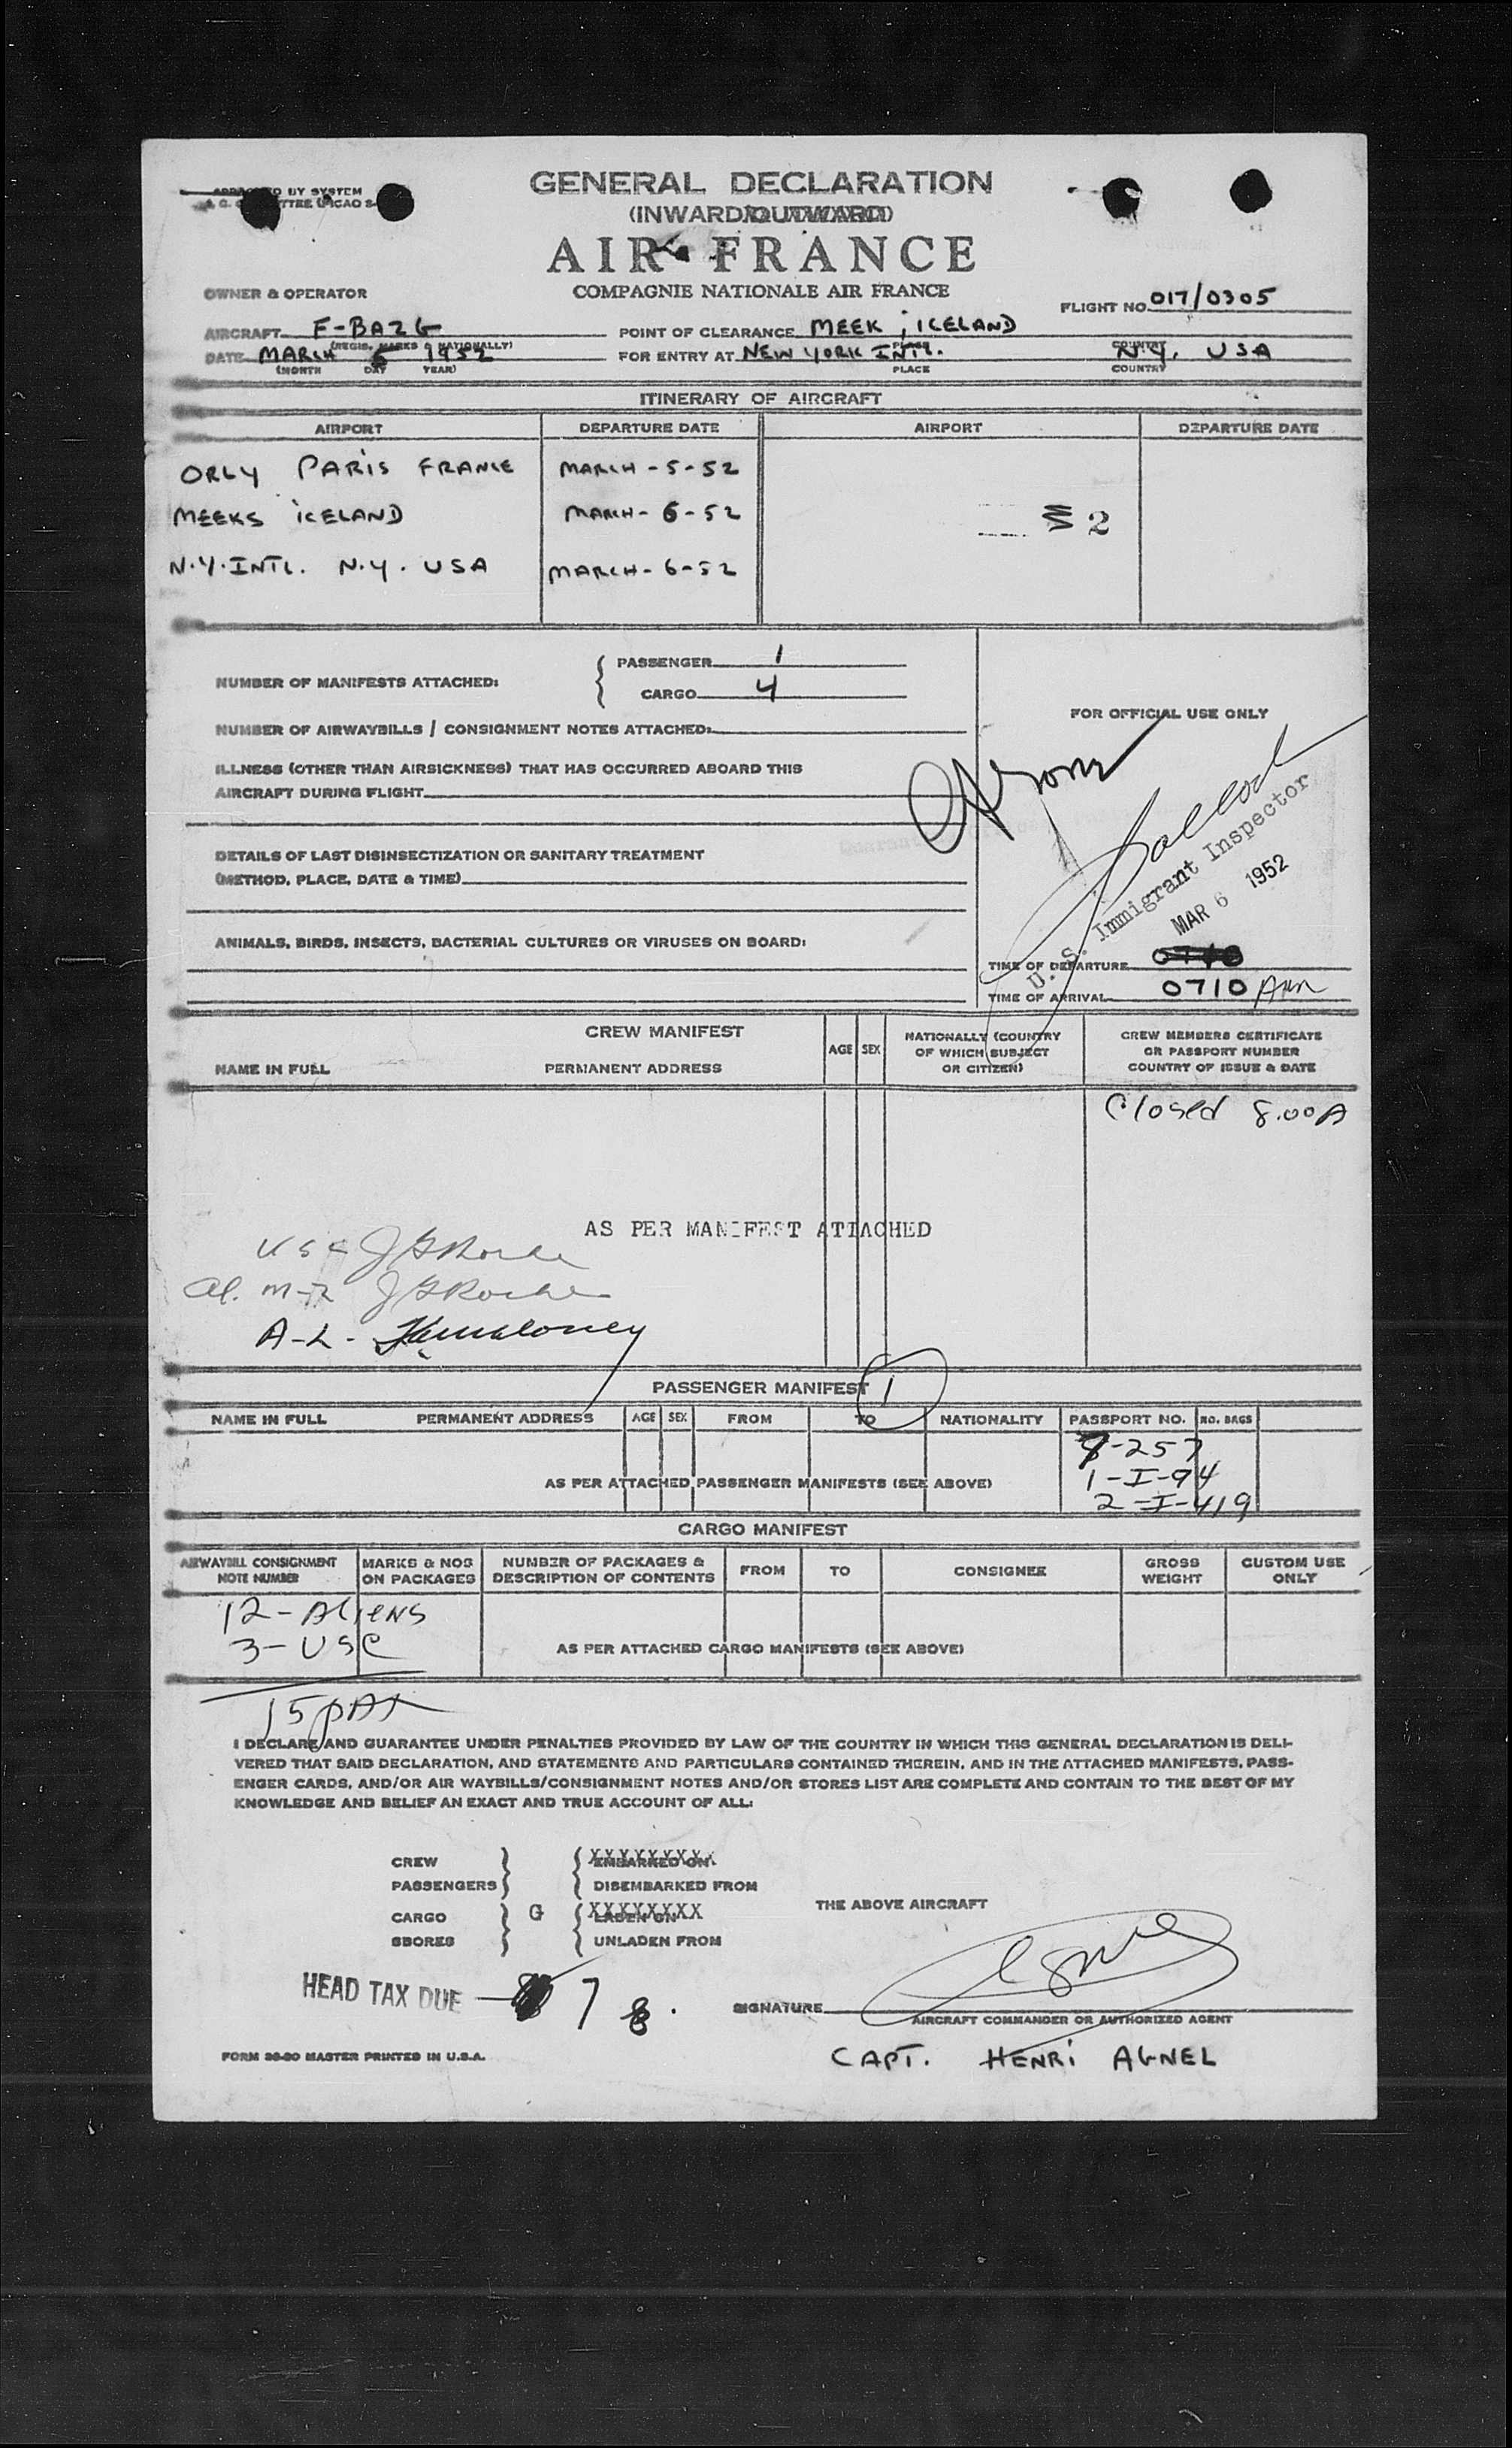 GENERAL DECLARATION
(INWARD/OUTWARD)
AIR FRANCE
COMPAGNIE NATIONALE AIR FRANCE
OWNER & OPERATOR
FLIGHT NO. 017/0305
AIRCRAFT F-BAZG POINT OF CLEARANCE MEEK, ICELAND
(REGIS. MARKS & NATIONALLY) PLACE COUNTRY
DATE MARCH 5 1952 FOR ENTRY AT NEW YORK INTL. N.Y. USA
(MONTH DAY YEAR) PLACE COUNTRY
ITINERARY OF AIRCRAFT
AIRPORT DEPARTURE DATE AIRPORT DEPARTURE DATE
ORLY PARIS FRANCE MARCH-5-52
MEEKS ICELAND MARCH-6-52
2
N.Y. INTL. N.Y. USA MARCH-6-52
NUMBER OF MANIFESTS ATTACHED:
PASSENGER 1
CARGO 4
FOR OFFICIAL USE ONLY
NUMBER OF AIRWAYBILLS / CONSIGNMENT NOTES ATTACHED:
ILLNESS (OTHER THAN AIRSICKNESS) THAT HAS OCCURRED ABOARD THIS
AIRCRAFT DURING FLIGHT
DETAILS OF LAST DISINSECTIZATION OR SANITARY TREATMENT
(METHOD, PLACE, DATE & TIME)
U. S. Immigrant Inspector
MAR 6 1952
ANIMALS, BIRDS, INSECTS, BACTERIAL CULTURES OR VIRUSES ON BOARD:
TIME OF DEPARTURE
TIME OF ARRIVAL 0710 AM
CREW MANIFEST
NAME IN FULL PERMANENT ADDRESS AGE SEX NATIONALLY (COUNTRY OF WHICH SUBJECT OR CITIZEN) CREW MEMBERS CERTIFICATE OR PASSPORT NUMBER COUNTRY OF ISSUE & DATE
Closed 8.00A
AS PER MANIFEST ATTACHED
A-L-
PASSENGER MANIFEST 1
NAME IN FULL PERMANENT ADDRESS AGE SEX FROM TO NATIONALITY PASSPORT NO. NO. BAGS
9-257
1-I-94
AS PER ATTACHED PASSENGER MANIFESTS (SEE ABOVE)
2-I-419
CARGO MANIFEST
AIRWAYBILL CONSIGNMENT NOTE NUMBER MARKS & NOS ON PACKAGES NUMBER OF PACKAGES & DESCRIPTION OF CONTENTS FROM TO CONSIGNEE GROSS WEIGHT CUSTOM USE ONLY
12-ALIENS
3-USC
AS PER ATTACHED CARGO MANIFESTS (SEE ABOVE)
15 PAX
I DECLARE AND GUARANTEE UNDER PENALTIES PROVIDED BY LAW OF THE COUNTRY IN WHICH THIS GENERAL DECLARATION IS DELI-
VERED THAT SAID DECLARATION, AND STATEMENTS AND PARTICULARS CONTAINED THEREIN, AND IN THE ATTACHED MANIFESTS, PASS-
ENGER CARDS, AND/OR AIR WAYBILLS/CONSIGNMENT NOTES AND/OR STORES LIST ARE COMPLETE AND CONTAIN TO THE BEST OF MY
KNOWLEDGE AND BELIEF AN EXACT AND TRUE ACCOUNT OF ALL:
CREW EMBARKED ON
PASSENGERS DISEMBARKED FROM
THE ABOVE AIRCRAFT
CARGO G LADEN ON
SBORES UNLADEN FROM
HEAD TAX DUE 7 8.
SIGNATURE
AIRCRAFT COMMANDER OR AUTHORIZED AGENT
FORM 36-20 MASTER PRINTED IN U.S.A.
CAPT. HENRI AGNEL